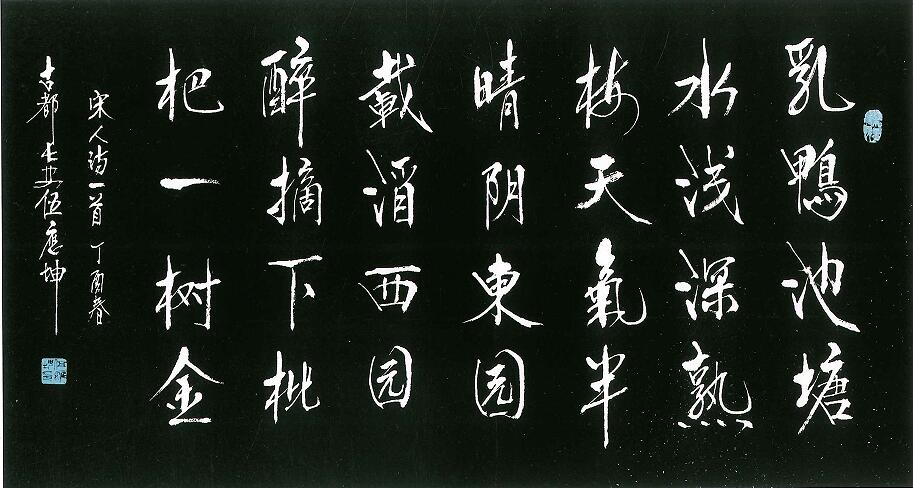 乳鸭池塘
水浅深熟
梅天氣半
晴阴東园
載酒西园
醉摘下枇
杷一树金
宋人诗一首丁酉春
古都长安伍應坤